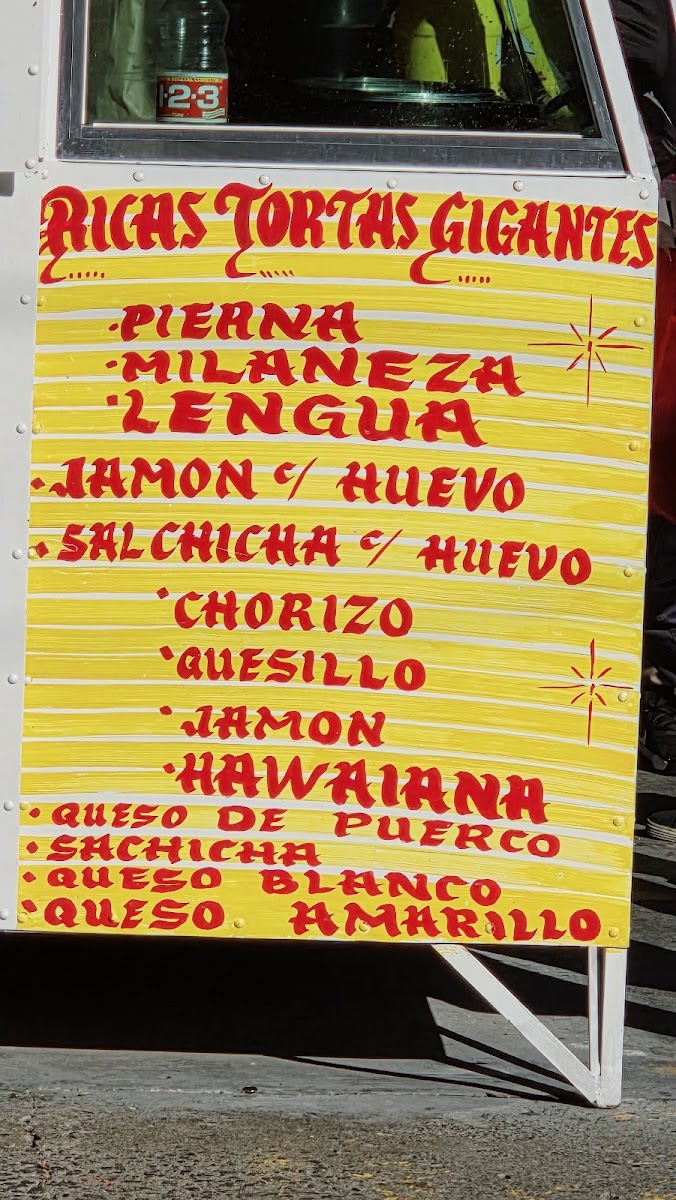 1-2-3
RICAS TORTAS GIGANTES
·PIERNA
·MILANEZA
·LENGUA
·JAMON c/ HUEVO
·SALCHICHA c/ HUEVO
·CHORIZO
·QUESILLO
·JAMON
·HAWAIANA
·QUESO DE PUERCO
·SACHICHA
·QUESO BLANCO
·QUESO AMARILLO